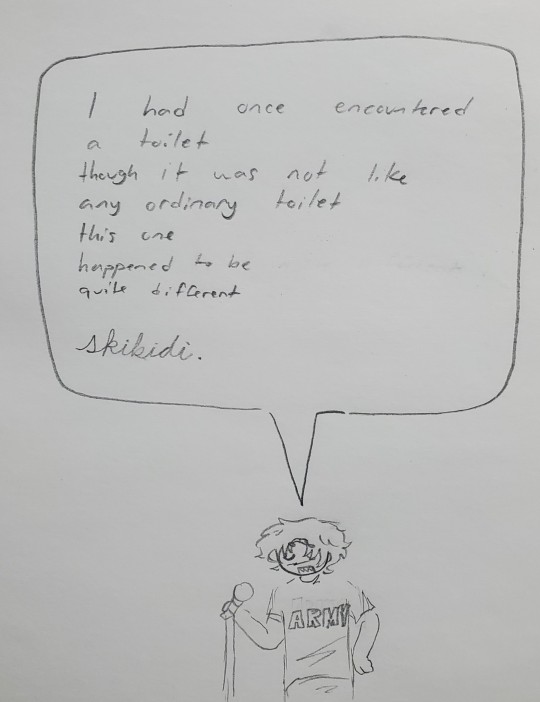 I had once encountered
a toilet
though it was not like
any ordinary toilet
this one
happened to be
quite different
skibidi.
ARMY